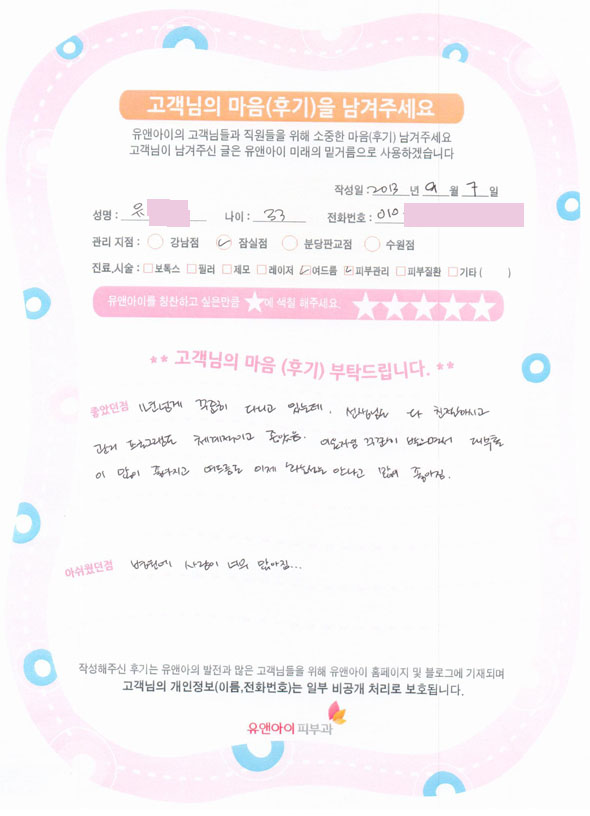 고객님의 마음(후기)을 남겨주세요
유앤아이의 고객님들과 직원들을 위해 소중한 마음(후기) 남겨주세요
고객님이 남겨주신 글은 유앤아이 미래의 밑거름으로 사용하겠습니다
작성일 : 2013 년 9 월 7 일
성명 : 유 나이 : 33 전화번호 : 010
관리 지점 : 강남점 잠실점 분당판교점 수원점
진료,시술 : 보톡스 필러 제모 레이저 여드름 피부관리 피부질환 기타 ( )
유앤아이를 칭찬하고 싶은만큼 ★에 색칠 해주세요. ★★★★★
** 고객님의 마음 (후기) 부탁드립니다. **
좋았던점 1년넘게 꾸준히 다니고 있는데, 선생님들 다 친절하시고
관리 프로그램도 체계적이고 좋았음. 꾸준히 받으면서 피부톤
이 많이 좋아지고 여드름도 이제 안나고 많이 좋아짐.
아쉬웠던점 병원에 사람이 너무 많아짐...
작성해주신 후기는 유앤아의 발전과 많은 고객님들을 위해 유앤아이 홈페이지 및 블로그에 기재되며
고객님의 개인정보(이름,전화번호)는 일부 비공개 처리로 보호됩니다.
유앤아이피부과